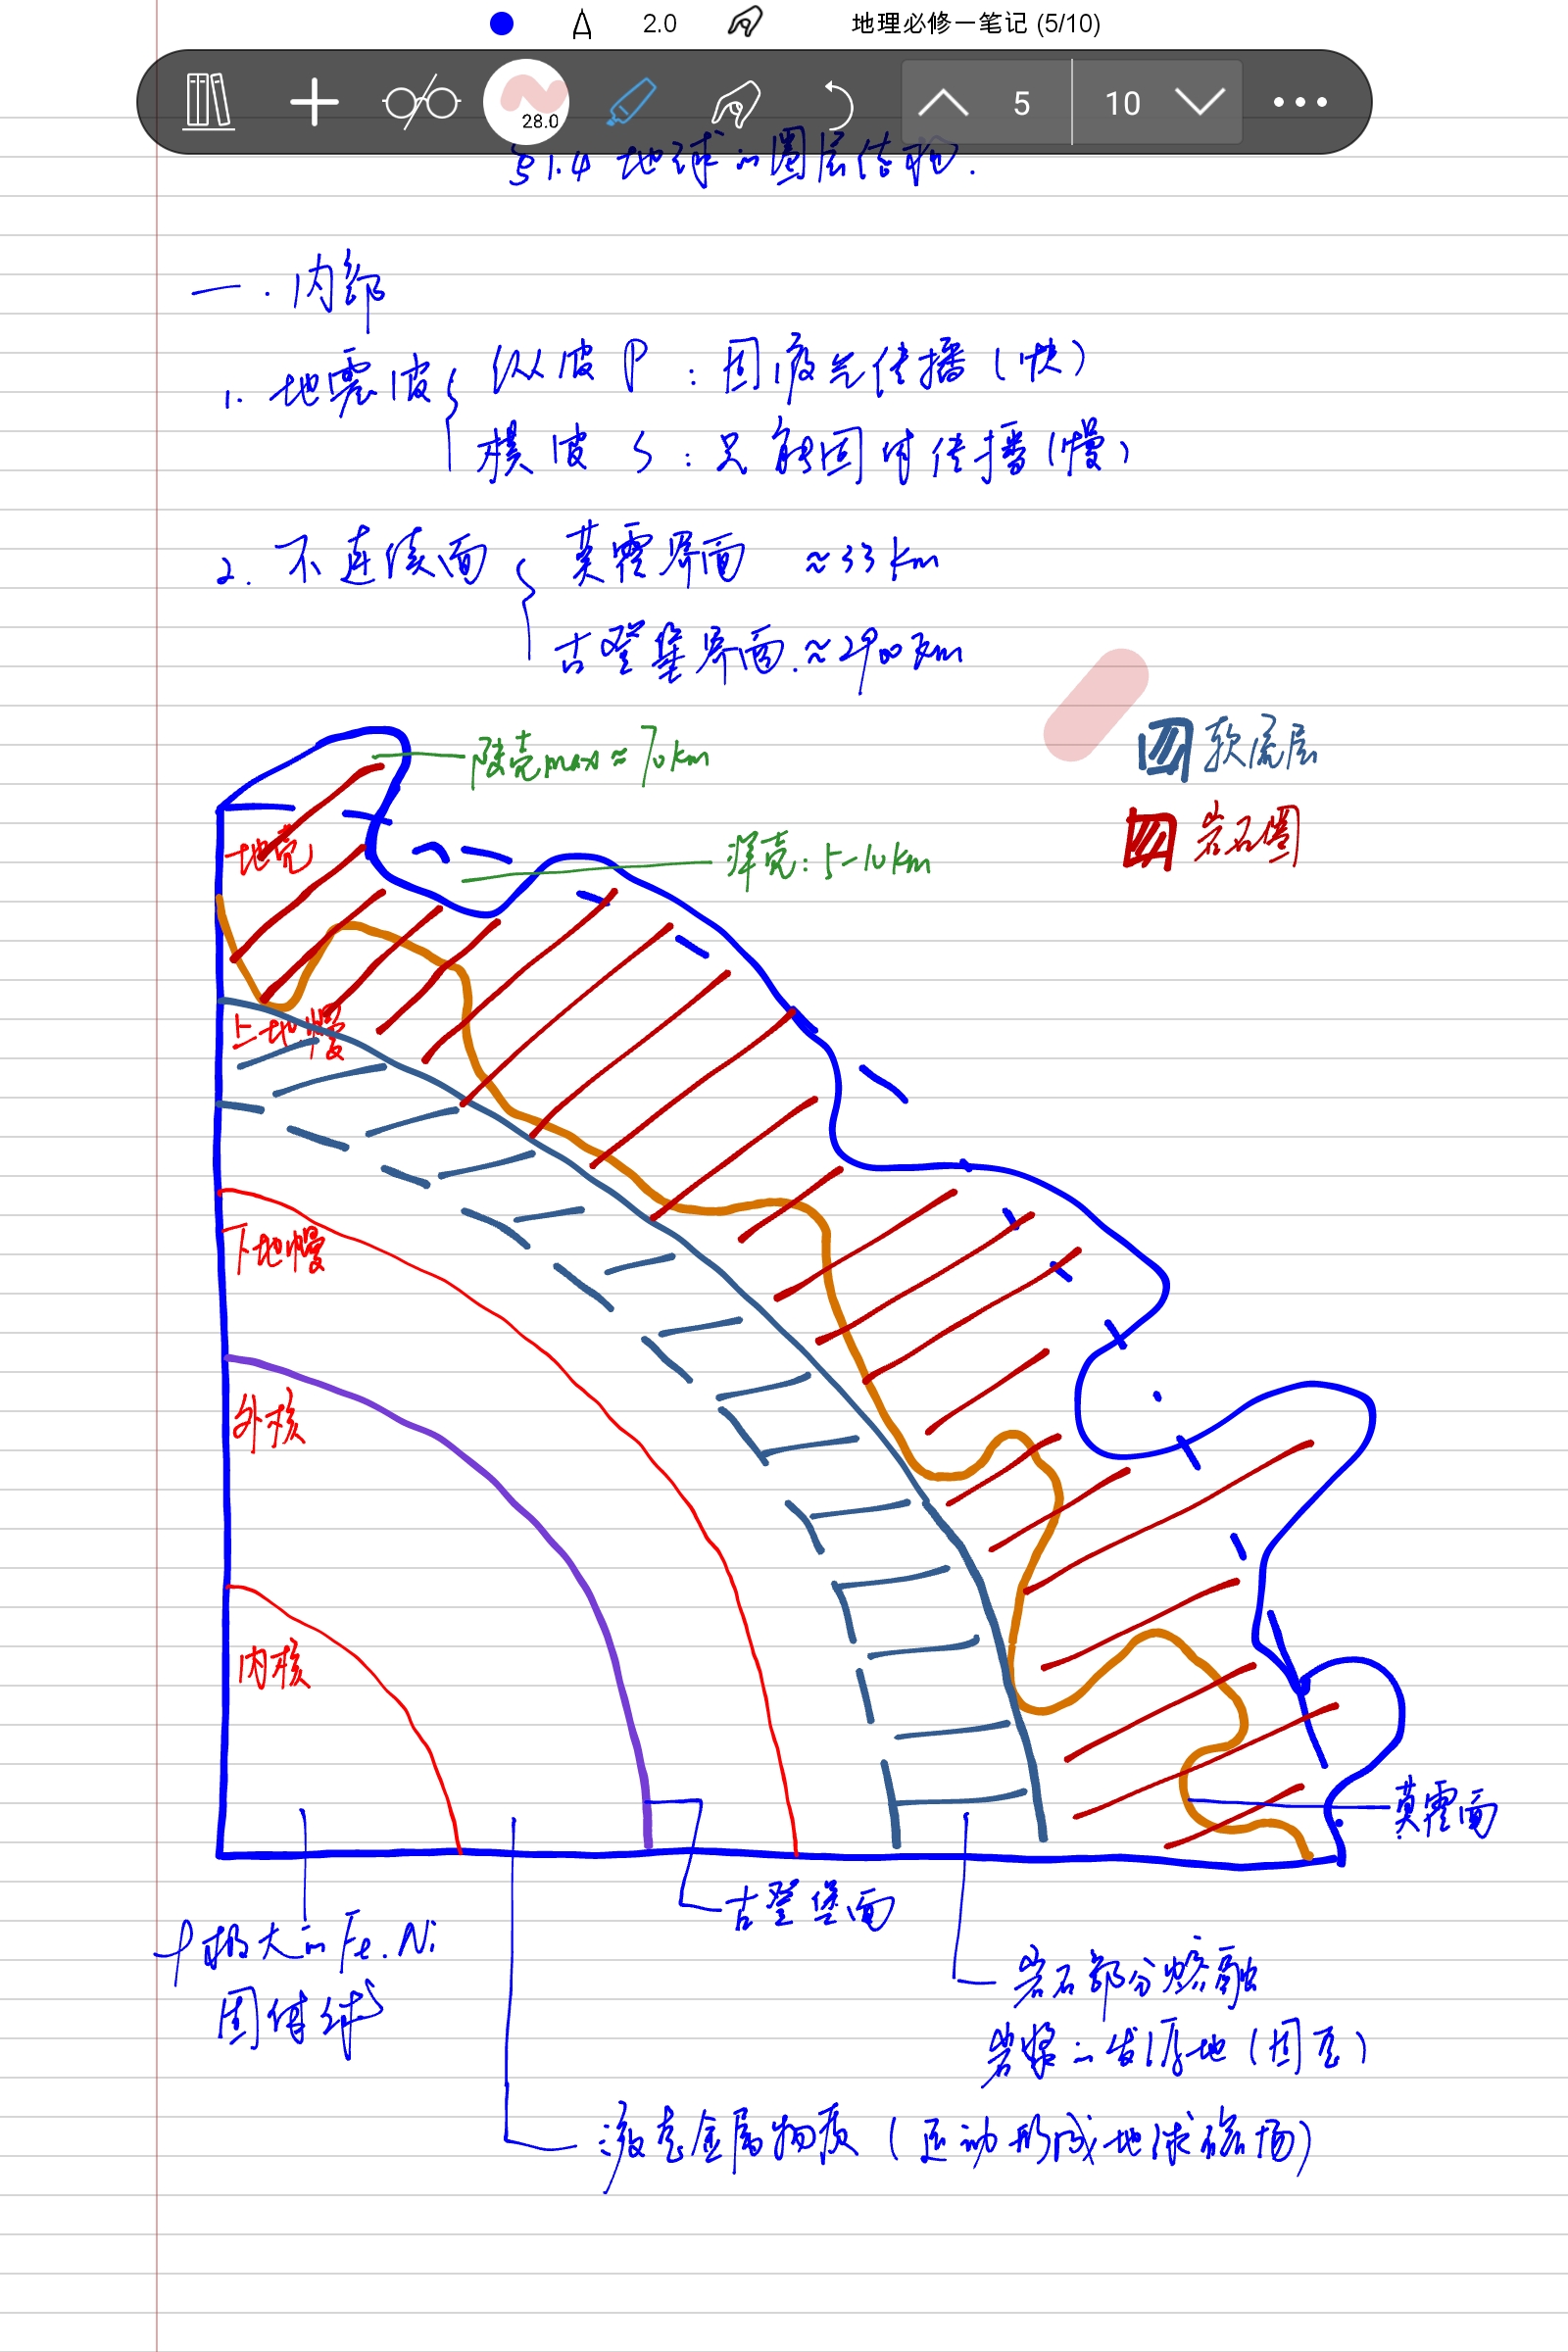 2.0 地理必修一笔记 (5/10)
28.0 5 10
§1.4 地球的圈层结构.
一.内部
1. 地震波 纵波 P : 固液气传播(快)
横波 S : 只能固体传播(慢)
2. 不连续面 莫霍界面 ≈33km
古登堡界面.≈2900km
陆壳max≈70km
软流层
岩石圈
洋壳:5-10km
地壳
上地幔
下地幔
外核
内核
莫霍面
古登堡面
ρ极大的Fe.Ni
固体
岩石部分熔融
岩浆的发源地(固态)
液态金属物质(运动形成地球磁场)